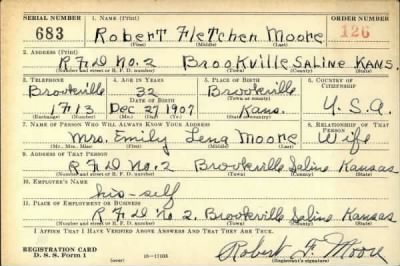 SERIAL NUMBER 1. NAME (Print) ORDER NUMBER
683 Robert Fletcher Moore 126
(First) (Middle) (Last)
2. ADDRESS (Print)
R.F.D No. 2 Brookville SALINE KANS.
(Number and street or R. F. D. number) (Town) (County) (State)
3. TELEPHONE 4. AGE IN YEARS 5. PLACE OF BIRTH 6. COUNTRY OF CITIZENSHIP
Brookville 32 Brookville
(Town or county)
1F13 Dec 27 1907 Kans. U.S.A.
7. NAME OF PERSON WHO WILL ALWAYS KNOW YOUR ADDRESS 8. RELATIONSHIP OF THAT PERSON
Mrs. Emily Lena Moore Wife
(Mr., Mrs., Miss) (First) (Middle) (Last)
9. ADDRESS OF THAT PERSON
R F D No. 2 Brookville Saline Kansas
(Number and street or R. F. D. number) (Town) (County) (State)
10. EMPLOYER'S NAME
his-self
11. PLACE OF EMPLOYMENT OR BUSINESS
R F D No 2. Brookville Saline Kansas
(Number and street or R. F. D. number) (Town) (County) (State)
I AFFIRM THAT I HAVE VERIFIED ABOVE ANSWERS AND THAT THEY ARE TRUE.
Robert F. Moore
REGISTRATION CARD
D. S. S. Form 1 (over) (Registrant's signature)